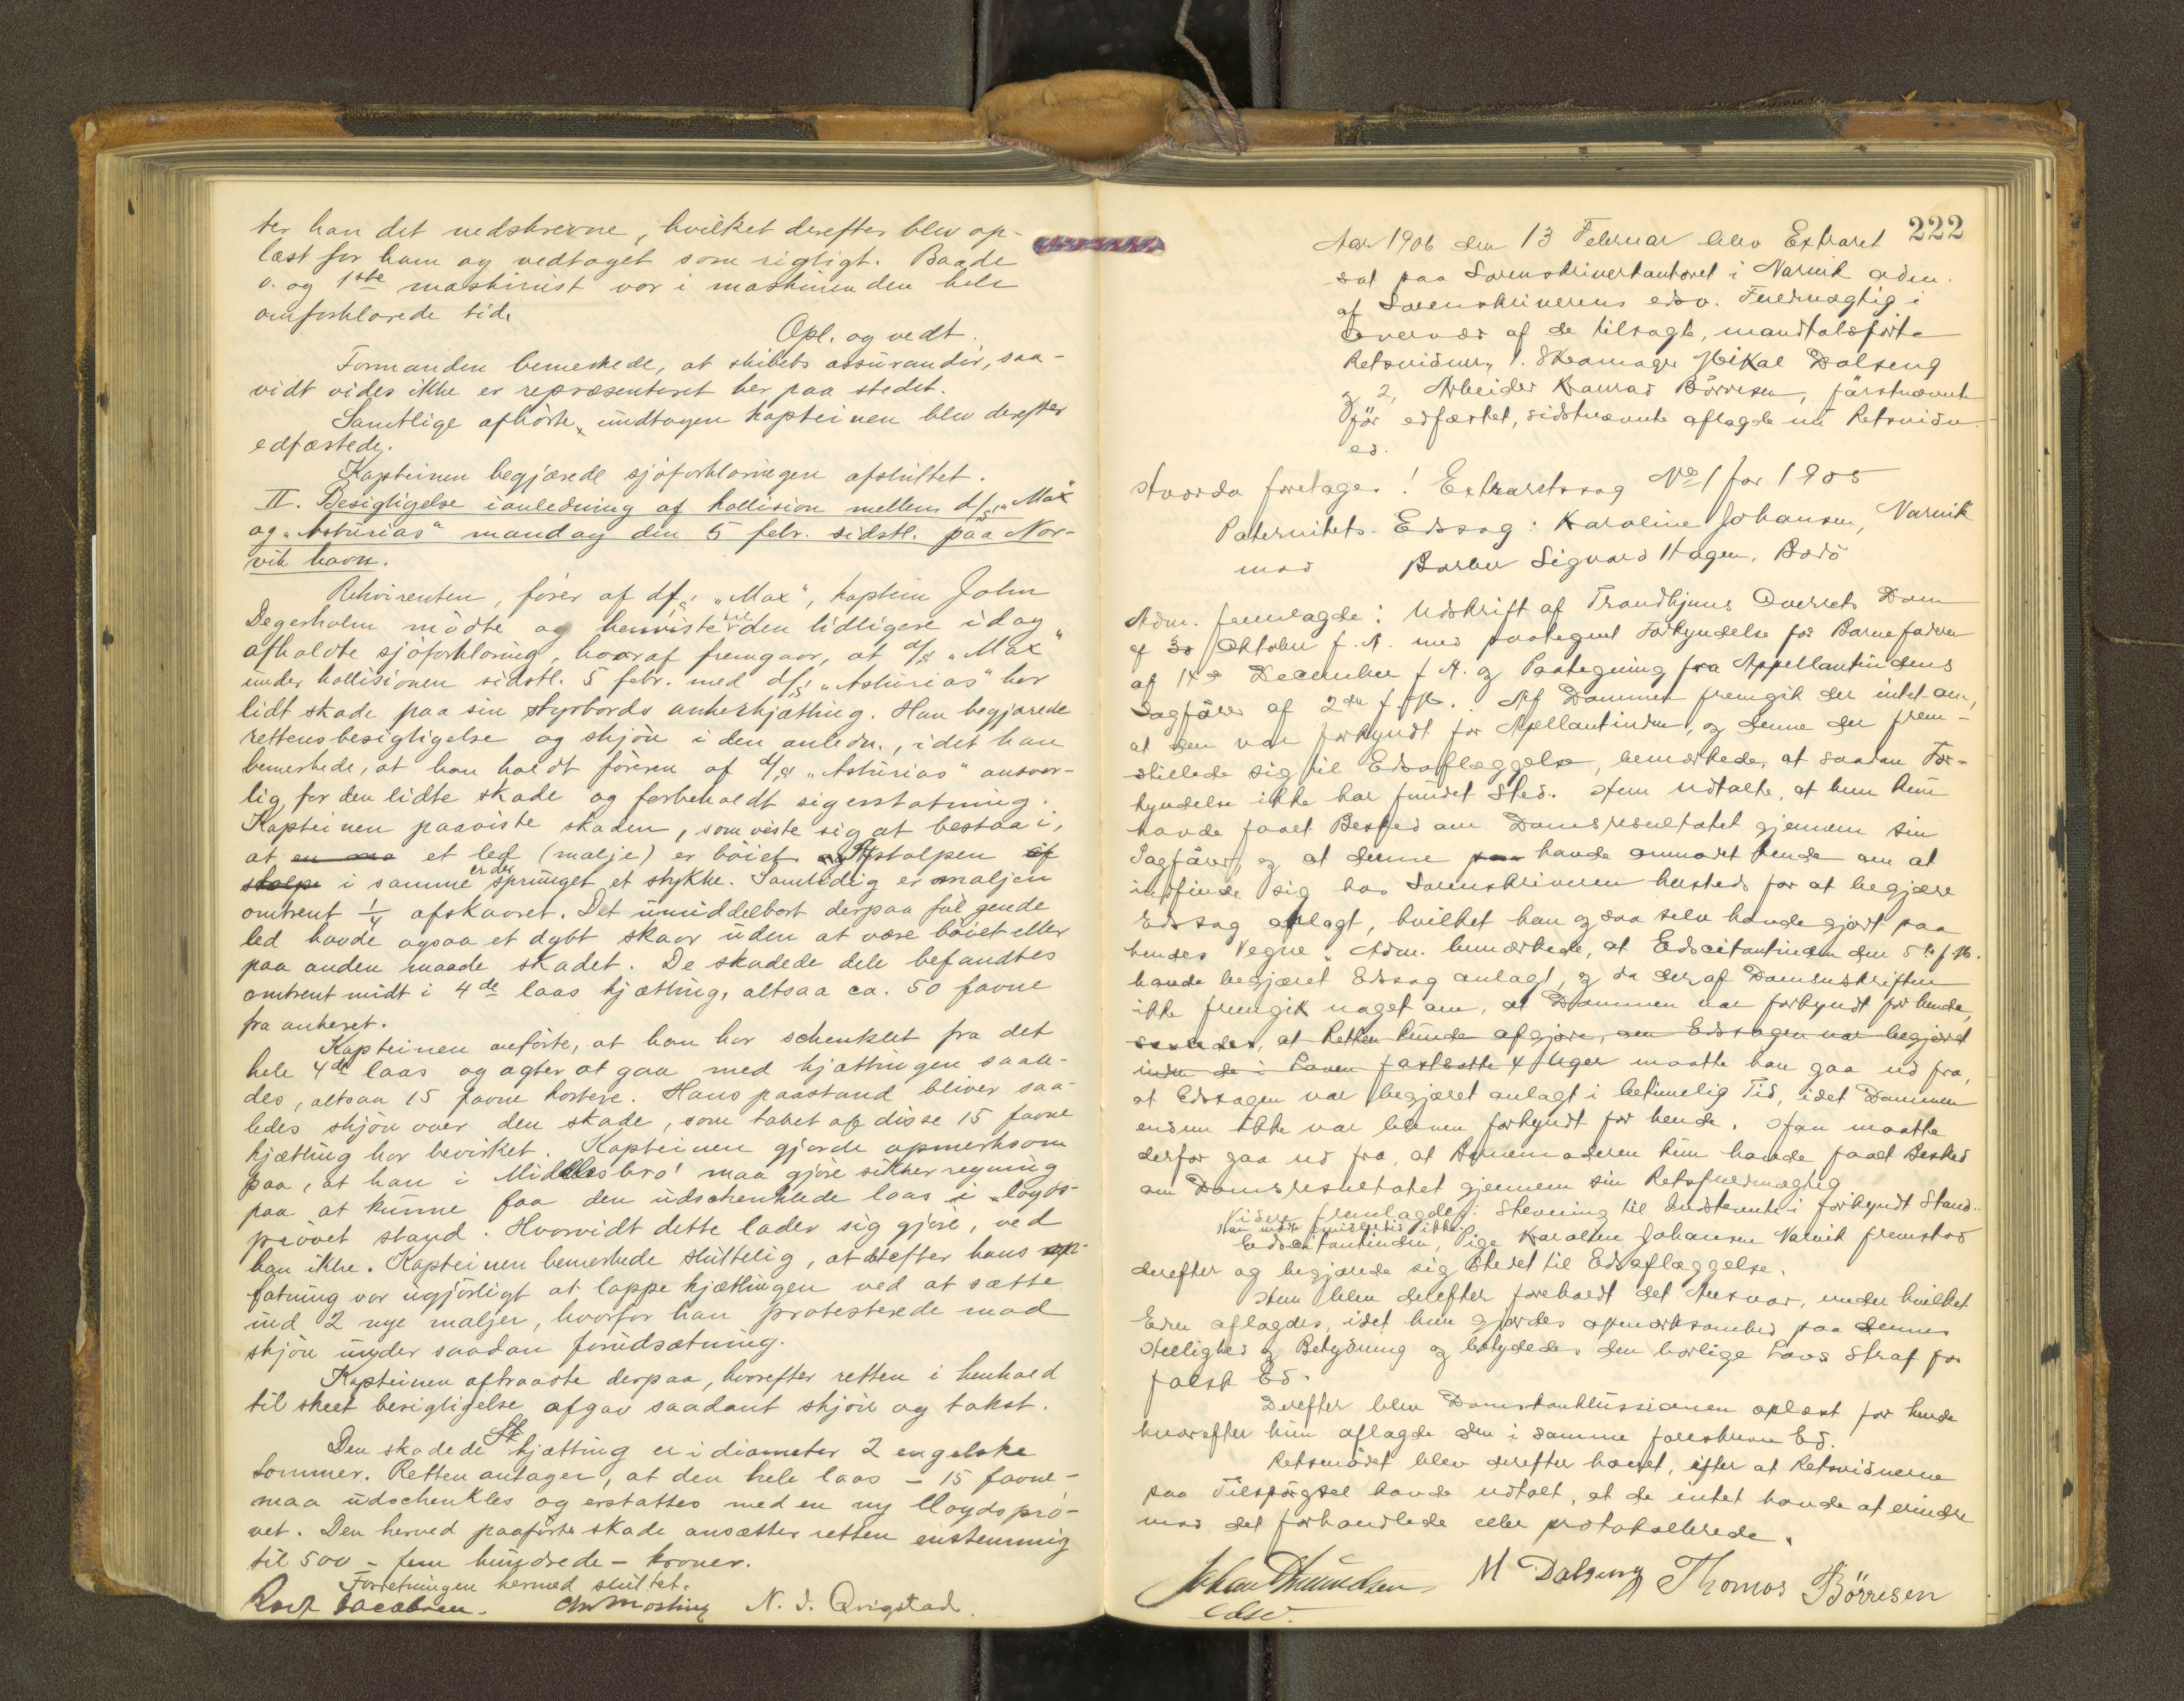 ter han det nedskrevne, hvilket derefter blev op-
læst for ham og vedtaget som rigtigt. Baade
o. og 1ste maskinist var i maskinen den hele
omforklarede tid.
Opl. og vedt.
Formanden bemerkede, at skibets assurandør, saa-
vidt vides ikke er repræsenteret her paa stedet.
Samtlige afhørte, undtagen kapteinen blev derefter
edfæstede.
Kapteinen begjærede sjøforklaringen afsluttet.
II. Besigtigelse i anledning af kollision mellem d/s "Max"
og "Asturias" mandag den 5 febr. sidstl. paa Nar-
vik havn.
Rekvirenten, fører af d/s "Max", kaptein John
Degerholm mødte og henviste til den tidligere idag
afholdte sjøforklaring, hvoraf fremgaar, at d/s "Max"
under kollisionen sidstl. 5 febr. med d/s "Asturias" har
lidt skade paa sin styrbords ankerkjætting. Han begjærede
rettens besigtigelse og skjøn i den anledn., idet han
bemerkede, at han holdt føreren af d/s "Asturias" ansvar-
lig for den lidte skade og forbeholdt sig erstatning.
Kapteinen paaviste skaden, som viste sig at bestaa i,
at en ma et led (malje) er bøiet og stolpen af
stolpe i samme er der sprunget et stykke. Samtidig er maljen
omtrent 1/4 afskaaret. Det umiddelbart derpaa følgende
led havde ogsaa et dybt skaar uden at være bøiet eller
paa anden maade skadet. De skadede dele befandtes
omtrent midt i 4de laas kjætting, altsaa ca. 50 favne
fra ankeret.
Kapteinen anførte, at han har schenklet fra det
hele 4de laas og agter at gaa med kjættingen saale-
des, altsaa 15 favne kortere. Hans paastand bliver saa-
ledes skjøn over den skade, som tabet af disse 15 favne
kjætting har bevirket. Kapteinen gjorde opmerksom
paa, at han i Middlesbro' maa gjøre sikker regning
paa at kunne faa den udschenklede laas i "loyds-
prøvet stand. Hvorvidt dette lader sig gjøre, ved
han ikke. Kapteinen bemerkede sluttelig, at det efter hans op-
fatning var ugjørligt at lappe kjættingen ved at sætte
ind 2 nye maljer, hvorfor han protesterede mod
skjøn under saadan forudsætning.
Kapteinen aftraadte derpaa, hvorefter retten i henhold
til skeet besigtigelse afgav saadant skjøn og takst.
Den skadede kjætting er i diameter 2 engelske
tommer. Retten antager, at den hele laas - 15 favne -
maa udschenkles og erstattes med en ny lloydsprø-
vet. Den herved paaførte skade ansætter retten enstemmig
til 500 - fem hundrede - kroner.
Forretningen hermed sluttet.
Jacobsen. Chr Mosling N. J. Qvigstad.
222
Aar 1906 den 13 Februar blev Extraret
sat paa Sorenskriverkontoret i Narvik adm.
af Sorenskriverens edsv. Fuldmægtig i
Overvær af de tilsagte, mandtalsførte
Retsvidner, 1. Skomager Mikal Dalseng
og 2, Arbeider Konrad Børresen, førstnævnte
før edfæstet, sidstnævnte aflagde nu Retsvidne
ed.
Hvorda foretages: Extraretssag No 1 for 1905
Paternitets-Edssag: Karoline Johansen, Narvik
mod Barber Sigvard Hagen, Bodø
Adm. fremlagde: Udskrift af Trondhjems Overrets Dom
af 30 Oktober f. A. med paategnet Forkyndelse for Barnefaderen
af 14de December f A. og Paategning fra Appellantindens
Sagfører af 2den f. M. Af Dommen fremgik der intet om,
at den var forkyndt for Apellantinden, og denne der frem-
stillede sig til Edsaflæggelse, bemærkede, at saadan For-
kyndelse ikke har fundet Sted. Hun udtalte, at hun kun
havde faaet Besked om Domsresultatet gjennem sin
Sagfører, og at denne paa havde anmodet hende om at
indfinde sig hos Sorenskriveren hersteds for at begjære
Edssag anlagt, hvilket han og saa selv havde gjort paa
hendes Vegne. Adm. bemærkede, at Edscitantinden den 5te f. M.
havde begjæret Edssag anlagt, og da der af Domsudskriften
ikke fremgik noget om, at Dommen var forkyndt for hende,
saaledes, at Retten kunde afgjøre, om Edssagen var begjæret
inden de i Loven fastsatte 4 Uger maatte han gaa ud fra,
at Edssagen var begjæret anlagt i betimelig Tid, idet Dommen
endnu ikke var bleven forkyndt for hende. Han maatte
derfor gaa ud fra, at Barnemoderen kun havde faaet Besked
om Domsresultatet gjennem sin Retsfuldmægtig
Videre fremlagdes: Stevning til Indstevnte i forkyndt Stand.
Han mødte imidlertid ikke.
Edscitantinden, Pige Karoline Johansen Narvik fremstod
derefter og begjærede sig stedet til Edsaflæggelse.
Hun blev derefter foreholdt det Ansvar, under hvilket
Eden aflagdes, idet hun gjordes opmærksomhed paa dennes
Hellighed og Betydning og betydedes den borlige Lovs Straf for
falsk Ed.
Derefter blev Domskonklussionen oplæst for hende
hvorefter hun aflagde den i samme foreskrevne Ed.
Retsmødet blev derefter hævet, efter at Retsvidnerne
paa Tilspørgsel havde udtalt, at de intet havde at erindre
mod det forhandlede eller protokollerede.
M Dalseng Thomas Børresen
edsv.